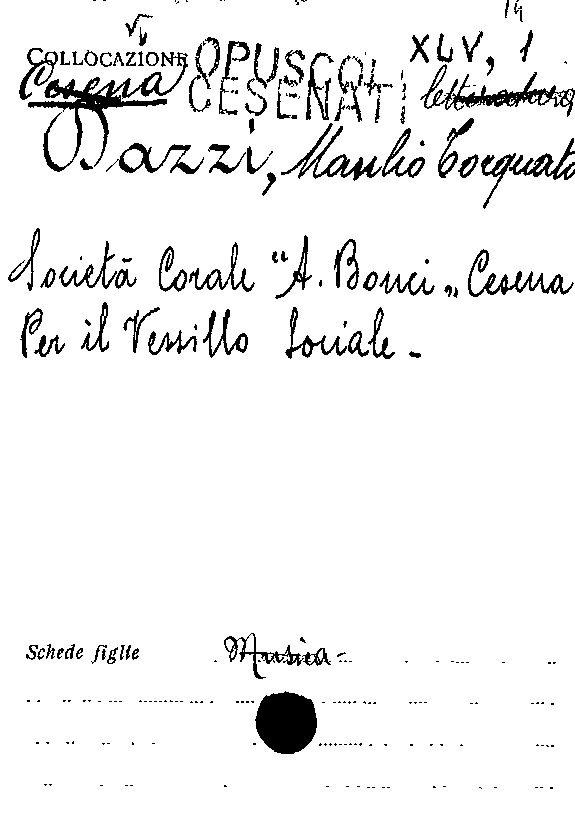 COLLOCAZIONE OPUSCOLI XLV, 1
Cesena CESENATI letteratura
Dazzi, Manlio Torquato
Società Corale "A. Bonci„ Cesena
Per il Vessillo Sociale -
Schede figlie Musica -